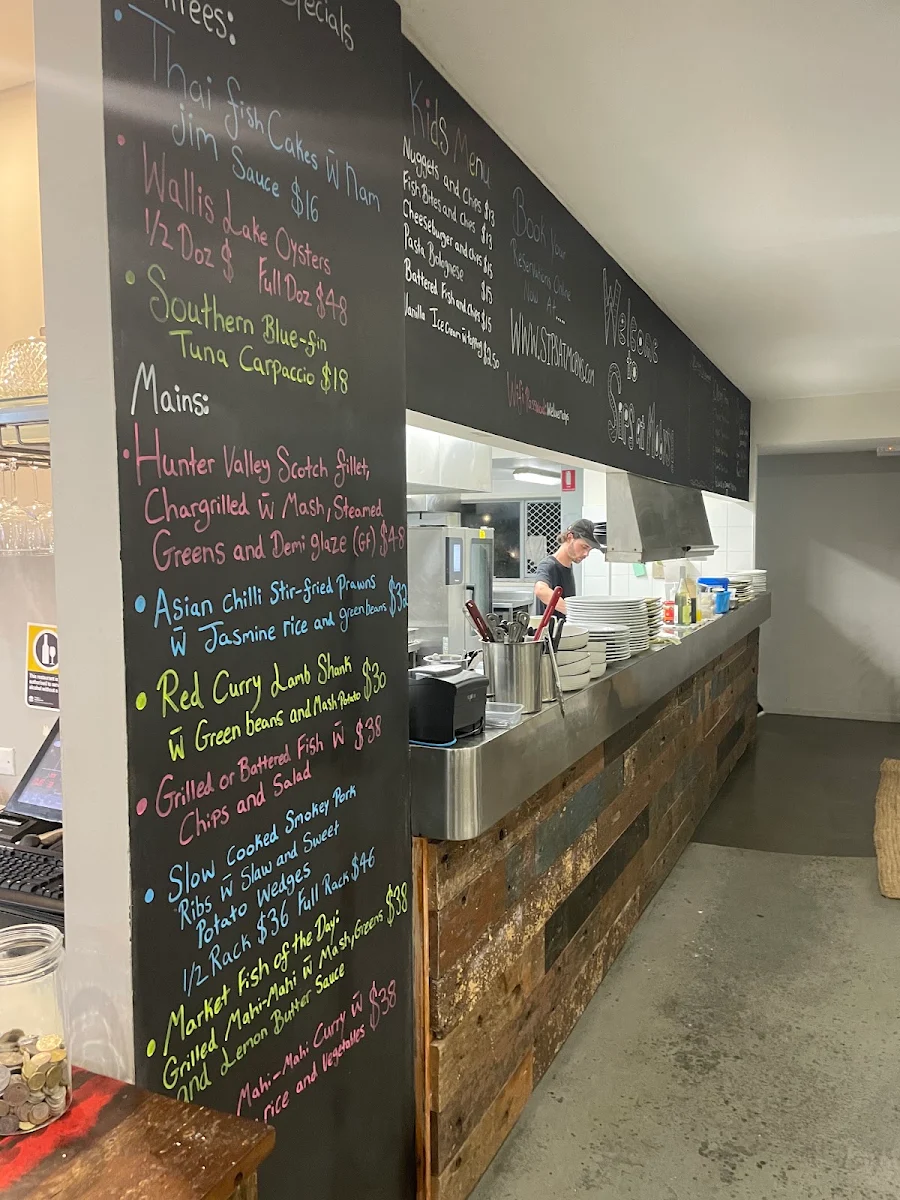 Specials
Thai fish Cakes w̄ Nam
Jim Sauce $16
Wallis Lake Oysters
1/2 Doz $ Full Doz $48
Southern Blue-fin
Tuna Carpaccio $18
Mains:
Hunter Valley Scotch fillet,
Chargrilled w̄ Mash, Steamed
Greens and Demi glaze (GF) $48
Asian chilli Stir-fried Prawns
w̄ Jasmine rice and green beans $32
Red Curry Lamb Shank
w̄ Green beans and Mash Potato $30
Grilled or Battered Fish w̄ $38
Chips and Salad
Slow Cooked Smokey Pork
Ribs w̄ Slaw and Sweet
Potato Wedges
1/2 Rack $36 Full Rack $46
Market Fish of the Day:
Grilled Mahi-Mahi w̄ Mash, Greens $38
and Lemon Butter Sauce
Mahi-Mahi Curry w̄ $38
rice and Vegetables
Kids Menu
Nuggets and Chips $13
Fish Bites and Chips $13
Cheeseburger and Chips $15
Pasta Bolognese $15
Battered Fish and Chips $15
Vanilla Ice Cream w̄ topping $2.50
Book Your
Reservations Online
Now At...
Wifi Password
Welcome
to
Sips at Mojos!